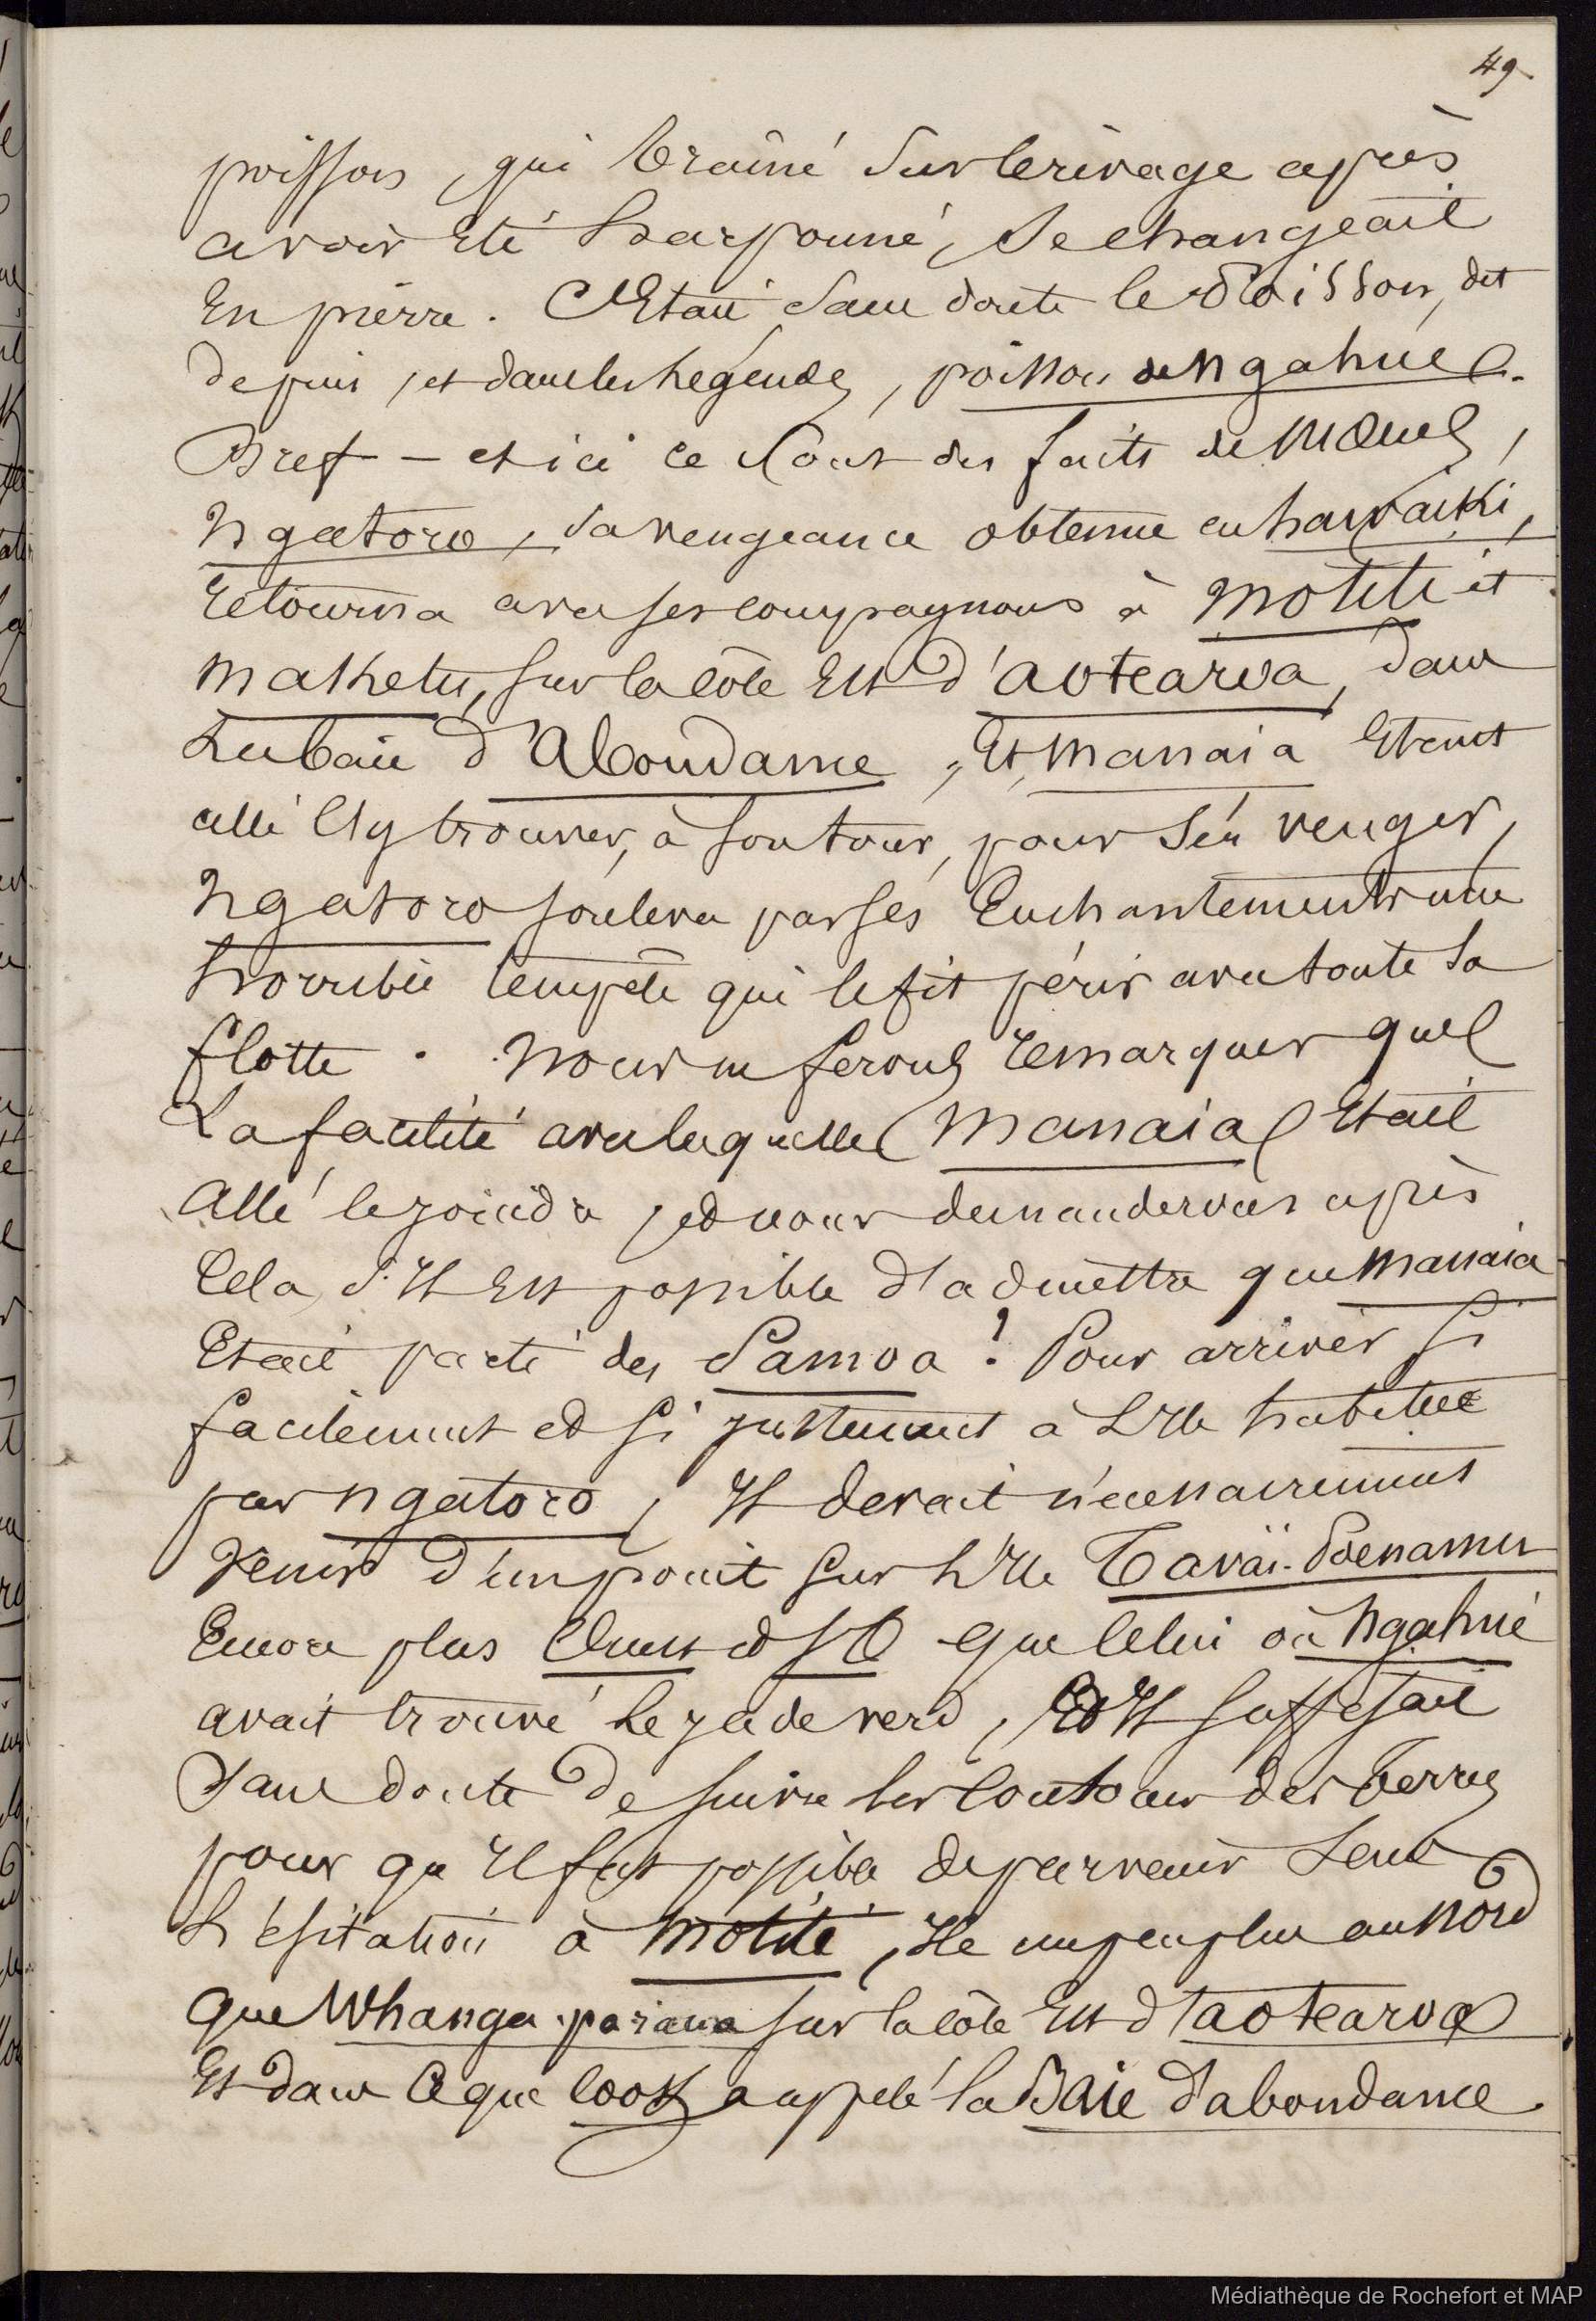 49
poisson, qui traîné sur le rivage après
avoir Eté harponné, se changeait
En pierre. C'Etait sans doute le Poisson, dit
depuis, et dans les légendes, poisson de Ngahué.
Bref – et ici ce sont des faits de
Ngatoro, sa vengeance obtenue en hawaiki,
retourna avec ses compagnons à Motiti et
Makhetu, sur la côte Est d'aotearoa, dans
La baie d'Abondance, Et Manaia Etant
allé l'y trouver, à son tour, pour s'en venger,
Ngatoro souleva par ses Enchantements une
horrible tempête qui le fit périr avec toute sa
flotte. Nous ne ferons remarquer que
La facilité avec laquelle Manaia Etait
Allé le joindre, et nous demanderons après
Cela, s'Il Est possible d'admettre que Manaia
Etait parti des Samoa? Pour arriver si
facilement et si justement à L'Ile habitée
par Ngatoro, Il devait nécessairement
Venir d'un point sur L'Ile Tavaï-Poenamu
Encore plus Ouest et SO que Celui où Ngahué
avait trouvé Le jade verd, Et Il suffisait
Sans doute De suivre les Contours des Terres
pour qu'Il fut possible de parvenir sans
hésitation à Motiti, Ile un peu plus au Nord
que Whanga-paraua sur la côte Est d'aotearoa
Et dans Ce que Cook a appelé la Baie d'abondance.
Médiathèque de Rochefort et MAP